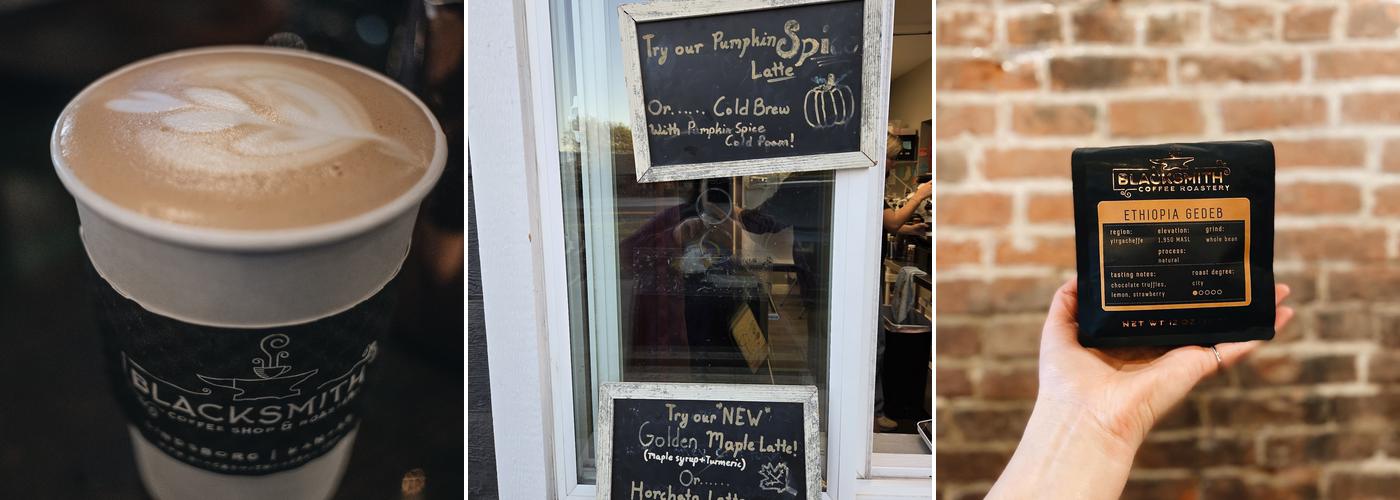 BLACKSMITH
COFFEE SHOP & ROAST
LINDSBORG | KANSAS
Try our Pumpkin Spice
Latte
Or...... Cold Brew
With Pumpkin Spice
Cold Foam!
Try our "NEW"
Golden Maple Latte!
(Maple syrup+Turmeric)
Or......
Horchata Latte
BLACKSMITH
COFFEE ROASTERY
ETHIOPIA GEDEB
region:
yirgacheffe
elevation:
1,950 MASL
grind:
whole bean
process:
natural
tasting notes:
chocolate truffles,
lemon, strawberry
roast degree:
city
NET WT 12 OZ